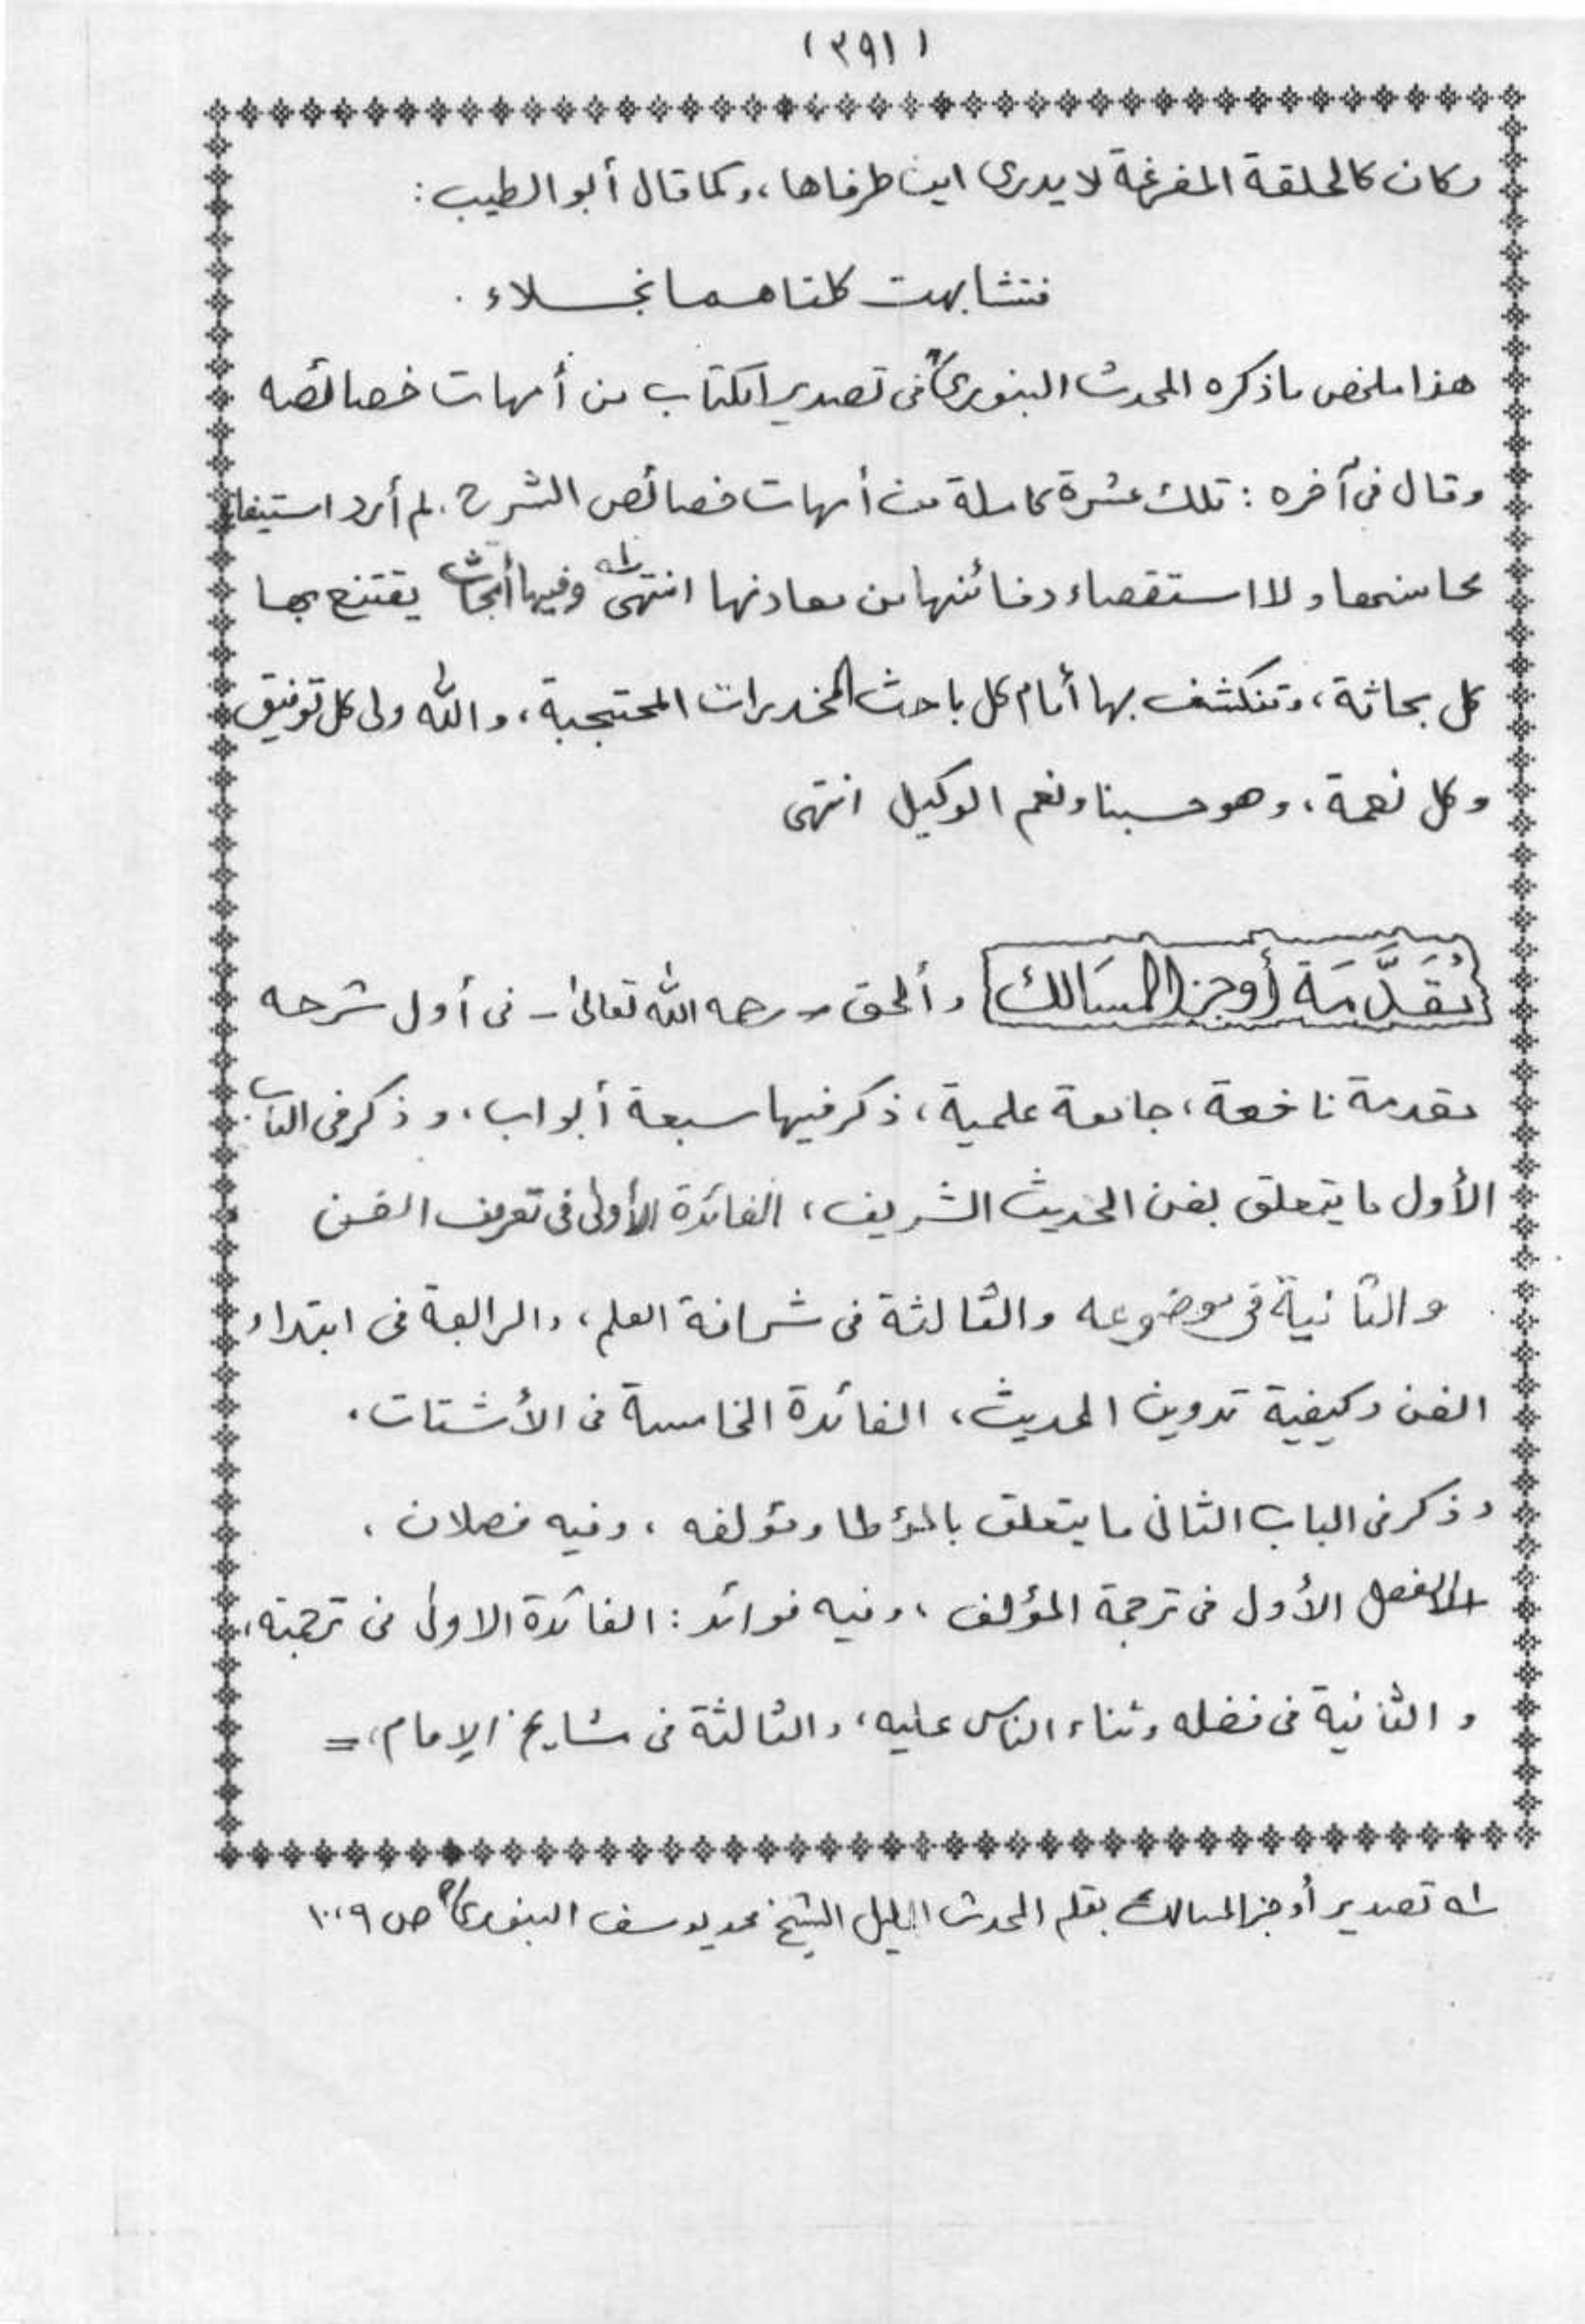 (٣٩١)
وكان كالحلقة المفرغة لا يدرى اين طرفاها، وكما قال أبو الطيب:
فتشابهت كلتاهما نجلاء.
هذا ملخص ما ذكره المحدث البنوريؒ فى تصدير الكتاب من أمهات خصائصه
وقال فى آخره: تلك عشرة كاملة من أمهات خصائص الشرح، لم أرد استيفاء
محاسنها ولا استقصاء دفائنها من معادنها انتهى له وفيها أبحاث يقتنع بها
كل بحاثة، وتنكشف بها أمام كل باحث المخدرات المحتجبة، والله ولى كل توفيق
وكل نعمة، وهو حسبنا ونعم الوكيل انتهى
مُقَدَّمَة أوجز المسَالك وألحق - رحمه الله تعالى - فى أول شرحه
مقدمة نافعة، جامعة علمية، ذكر فيها سبعة أبواب، وذكر فى الباب
الأول ما يتعلق بفن الحديث الشريف، الفائدة الأولى فى تعريف الفن
والثانية فى موضوعه والثالثة فى شرافة العلم، والرابعة فى ابتداء
الفن وكيفية تدوين الحديث، الفائدة الخامسة فى الأشتات.
وذكر فى الباب الثانى ما يتعلق بالمؤطا ومؤلفه، وفيه فصلان،
الفصل الأول فى ترجمة المؤلف، وفيه فوائد: الفائدة الاولى فى ترجمته،
والثانية فى فضله وثناء الناس عليه، والثالثة فى مشايخ الإمام، =
له تصدير أوجز المسالك بقلم المحدث الجليل الشيخ محمد يوسف البنوريؒ ص ١٠،٩